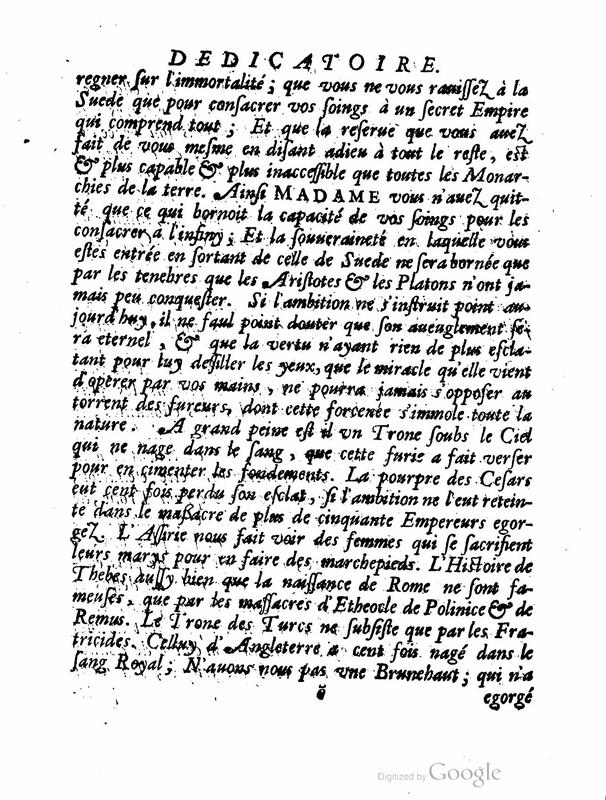 DEDICATOIRE.
regner ſur l'immortalité; que vous ne vous rauiſſez à la
Suede que pour conſacrer vos ſoings à un ſecret Empire
qui comprend tout; Et que la reſerue que vous auez
fait de vous meſme en diſant adieu à tout le reſte, eſt
& plus capable & plus inacceſſible que toutes les Monar-
chies de la terre. Ainſi MADAME vous n'auez quit-
té que ce qui bornoit la capacité de vos ſoings pour les
conſacrer à l'infiny; Et la ſouueraineté en laquelle vous
eſtes entrée en ſortant de celle de Suede ne ſera bornée que
par les tenebres que les Ariſtotes & les Platons n'ont ja-
mais peu conqueſter. Si l'ambition ne s'inſtruit point au-
jourd'huy, il ne faul point douter que ſon aueuglement ſe-
ra eternel, & que la vertu n'ayant rien de plus eſcla-
tant pour luy deſſiller les yeux, que le miracle qu'elle vient
d'operer par vos mains, ne pourra jamais s'oppoſer au
torrent des fureurs, dont cette forcenée s'immole toute la
nature. A grand peine eſt il vn Trone ſoubs le Ciel
qui ne nage dans le ſang, que cette furie a fait verſer
pour en cimenter les fondements. La pourpre des Ceſars
eut cent fois perdu ſon eſclat, ſi l'ambition ne l'eut retein-
te dans le maſſacre de plus de cinquante Empereurs egor-
gez. L'Aſſirie nous fait voir des femmes qui ſe ſacrifient
leurs marys pour en faire des marchepieds. L'Hiſtoire de
Thebes auſſy bien que la naiſſance de Rome ne ſont fa-
meuſes, que par les maſſacres d'Etheocle de Polinice & de
Remus. Le Trone des Turcs ne ſubſiſte que par les Fra-
tricides. Celluy d'Angleterre a cent fois nagé dans le
ſang Royal; N'auons nous pas vne Brunehaut; qui n'a
ĕ egorgé
Digitized by Google